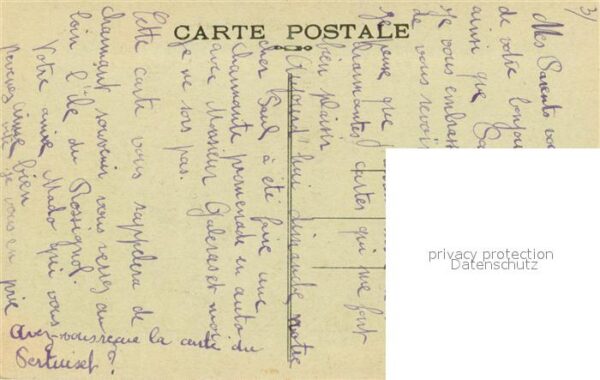 CARTE POSTALE
3/
Mes Parents vous
de votre bonjour
ainsi que
Je vous embrass
Le vous revoir
je pense que
charmantes cartes qui me font
bien plaisir
Aujourd'hui dimanche notre
cher Paul a été faire une
charmante promenade en auto
avec Monsieur et moi
je ne sors pas.
Cette carte vous rappelera de
charmant souvenir vous verrez au
loin l'île du Rossignol.
Votre amie Mado qui vous
aime bien
je vous en prie
Avez-vous reçue la carte du
Pertuiset?
privacy protection
Datenschutz